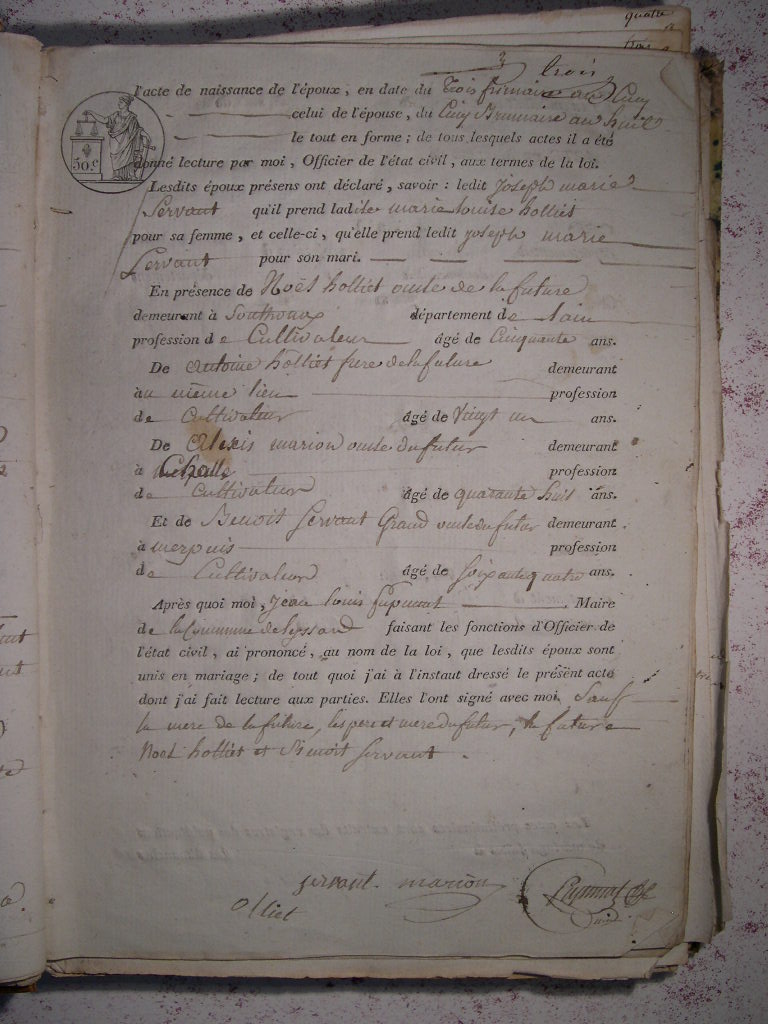 quatre
trois
l'acte de naissance de l'époux, en date du trois frimaire an cinq
celui de l'épouse, du cinq Brumaire an huit
le tout en forme; de tous lesquels actes il a été
donné lecture par moi, Officier de l'état civil, aux termes de la loi.
50.c
Lesdits époux présens ont déclaré, savoir: ledit joseph marie
Servant qu'il prend ladite marie louise holliet
pour sa femme, et celle-ci, qu'elle prend ledit joseph marie
Servant pour son mari.
En présence de Noël holliet oncle de la future
demeurant à département de lain
profession de Cultivateur âgé de Cinquante ans.
De antoine holliet frere de la future demeurant
au même lieu profession
de Cultivateur âgé de Vingt un ans.
De alexis marion oncle du futur demeurant
à Challe profession
de Cultivateur âgé de quarante huit ans.
Et de Benoit Servant Grand oncle du futur demeurant
à merpuis profession
de Cultivateur âgé de Soixante quatre ans.
Après quoi moi, jean louis Maire
de la Commune de lyssard faisant les fonctions d'Officier de
l'état civil, ai prononcé, au nom de la loi, que lesdits époux sont
unis en mariage; de tout quoi j'ai à l'instaut dressé le présent acte
dont j'ai fait lecture aux parties. Elles l'ont signé avec moi Sauf
la mere de la future, les pere et mere du futur, la future
Noel holliet et Benoit Servant.
servant. marion
olliet